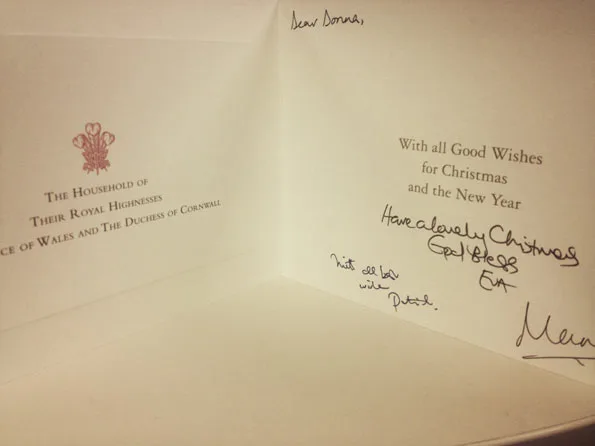 Dear Donna,
THE HOUSEHOLD OF
THEIR ROYAL HIGHNESSES
CE OF WALES AND THE DUCHESS OF CORNWALL
With all Good Wishes
for Christmas
and the New Year
Have a lovely Christmas
God Bless
EVA